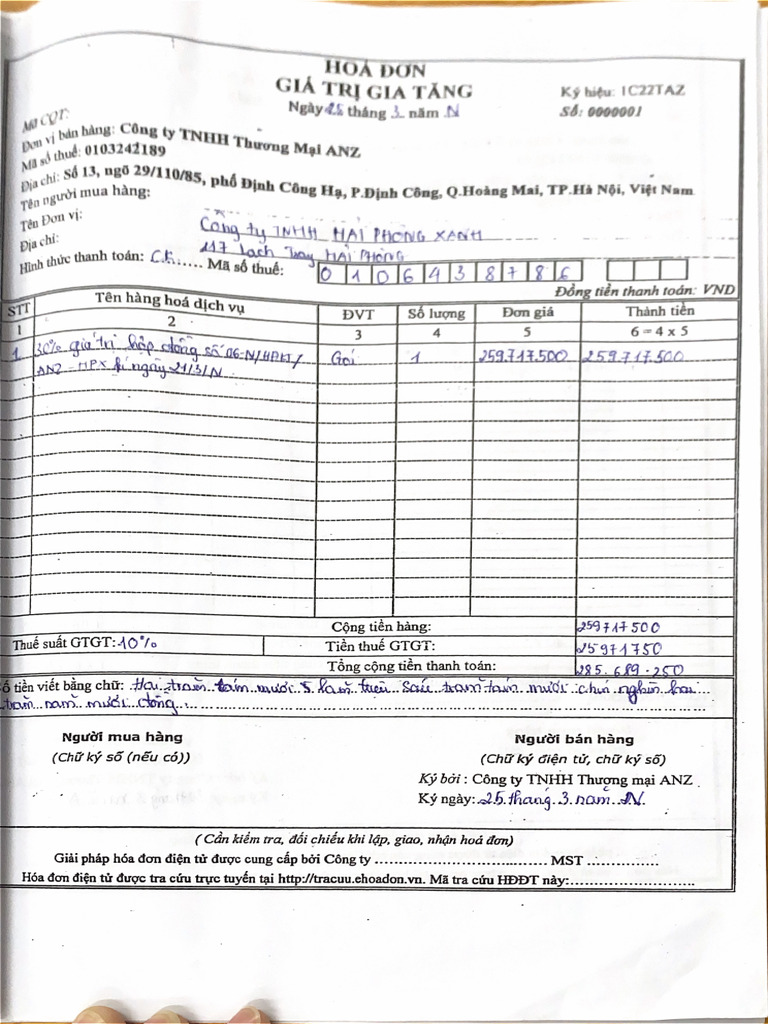 HOÁ ĐƠN
GIÁ TRỊ GIA TĂNG
Ký hiệu: 1C22TAZ
Ngày 25 tháng 3 năm N
Số: 0000001
Mã CQT:
Đơn vị bán hàng: Công ty TNHH Thương Mại ANZ
Mã số thuế: 0103242189
Địa chỉ: Số 13, ngõ 29/110/85, phố Định Công Hạ, P.Định Công, Q.Hoàng Mai, TP.Hà Nội, Việt Nam
Tên người mua hàng:
Tên Đơn vị: Công ty TNHH HẢI PHÒNG XANH
Địa chỉ: 117 Lạch Tray HẢI PHÒNG
Hình thức thanh toán: CK...... Mã số thuế: 0106438786
Đồng tiền thanh toán: VND
STT Tên hàng hoá dịch vụ ĐVT Số lượng Đơn giá Thành tiền
1 2 3 4 5 6 = 4 x 5
1 30% giá trị hợp đồng số 06-N/HĐKT/ Gói 1 259.717.500 259.717.500
ANZ - HPX ngày 21/3/N
Cộng tiền hàng: 259717500
Thuế suất GTGT: 10% Tiền thuế GTGT: 25971750
Tổng cộng tiền thanh toán: 285.689.250
Số tiền viết bằng chữ: Hai trăm tám mươi lăm triệu sáu trăm tám mươi chín nghìn hai
trăm năm mươi đồng
Người mua hàng Người bán hàng
(Chữ ký số (nếu có)) (Chữ ký điện tử, chữ ký số)
Ký bởi : Công ty TNHH Thượng mại ANZ
Ký ngày: 25 tháng 3 năm N
( Cần kiểm tra, đối chiếu khi lập, giao, nhận hoá đơn)
Giải pháp hóa đơn điện tử được cung cấp bởi Công ty .................................... MST ...............
Hóa đơn điện tử được tra cứu trực tuyến tại http://tracuu.ehoadon.vn. Mã tra cứu HĐĐT này:..........................